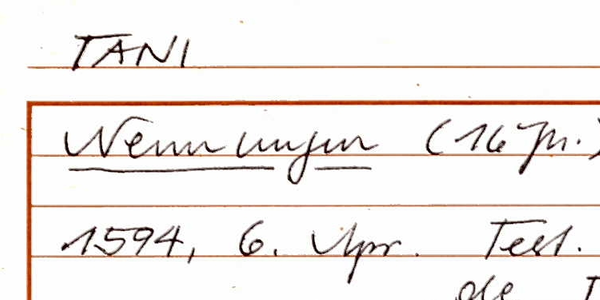 TANI
Nennungen (16 Jh.)
1594, 6. Apr. Test.
de